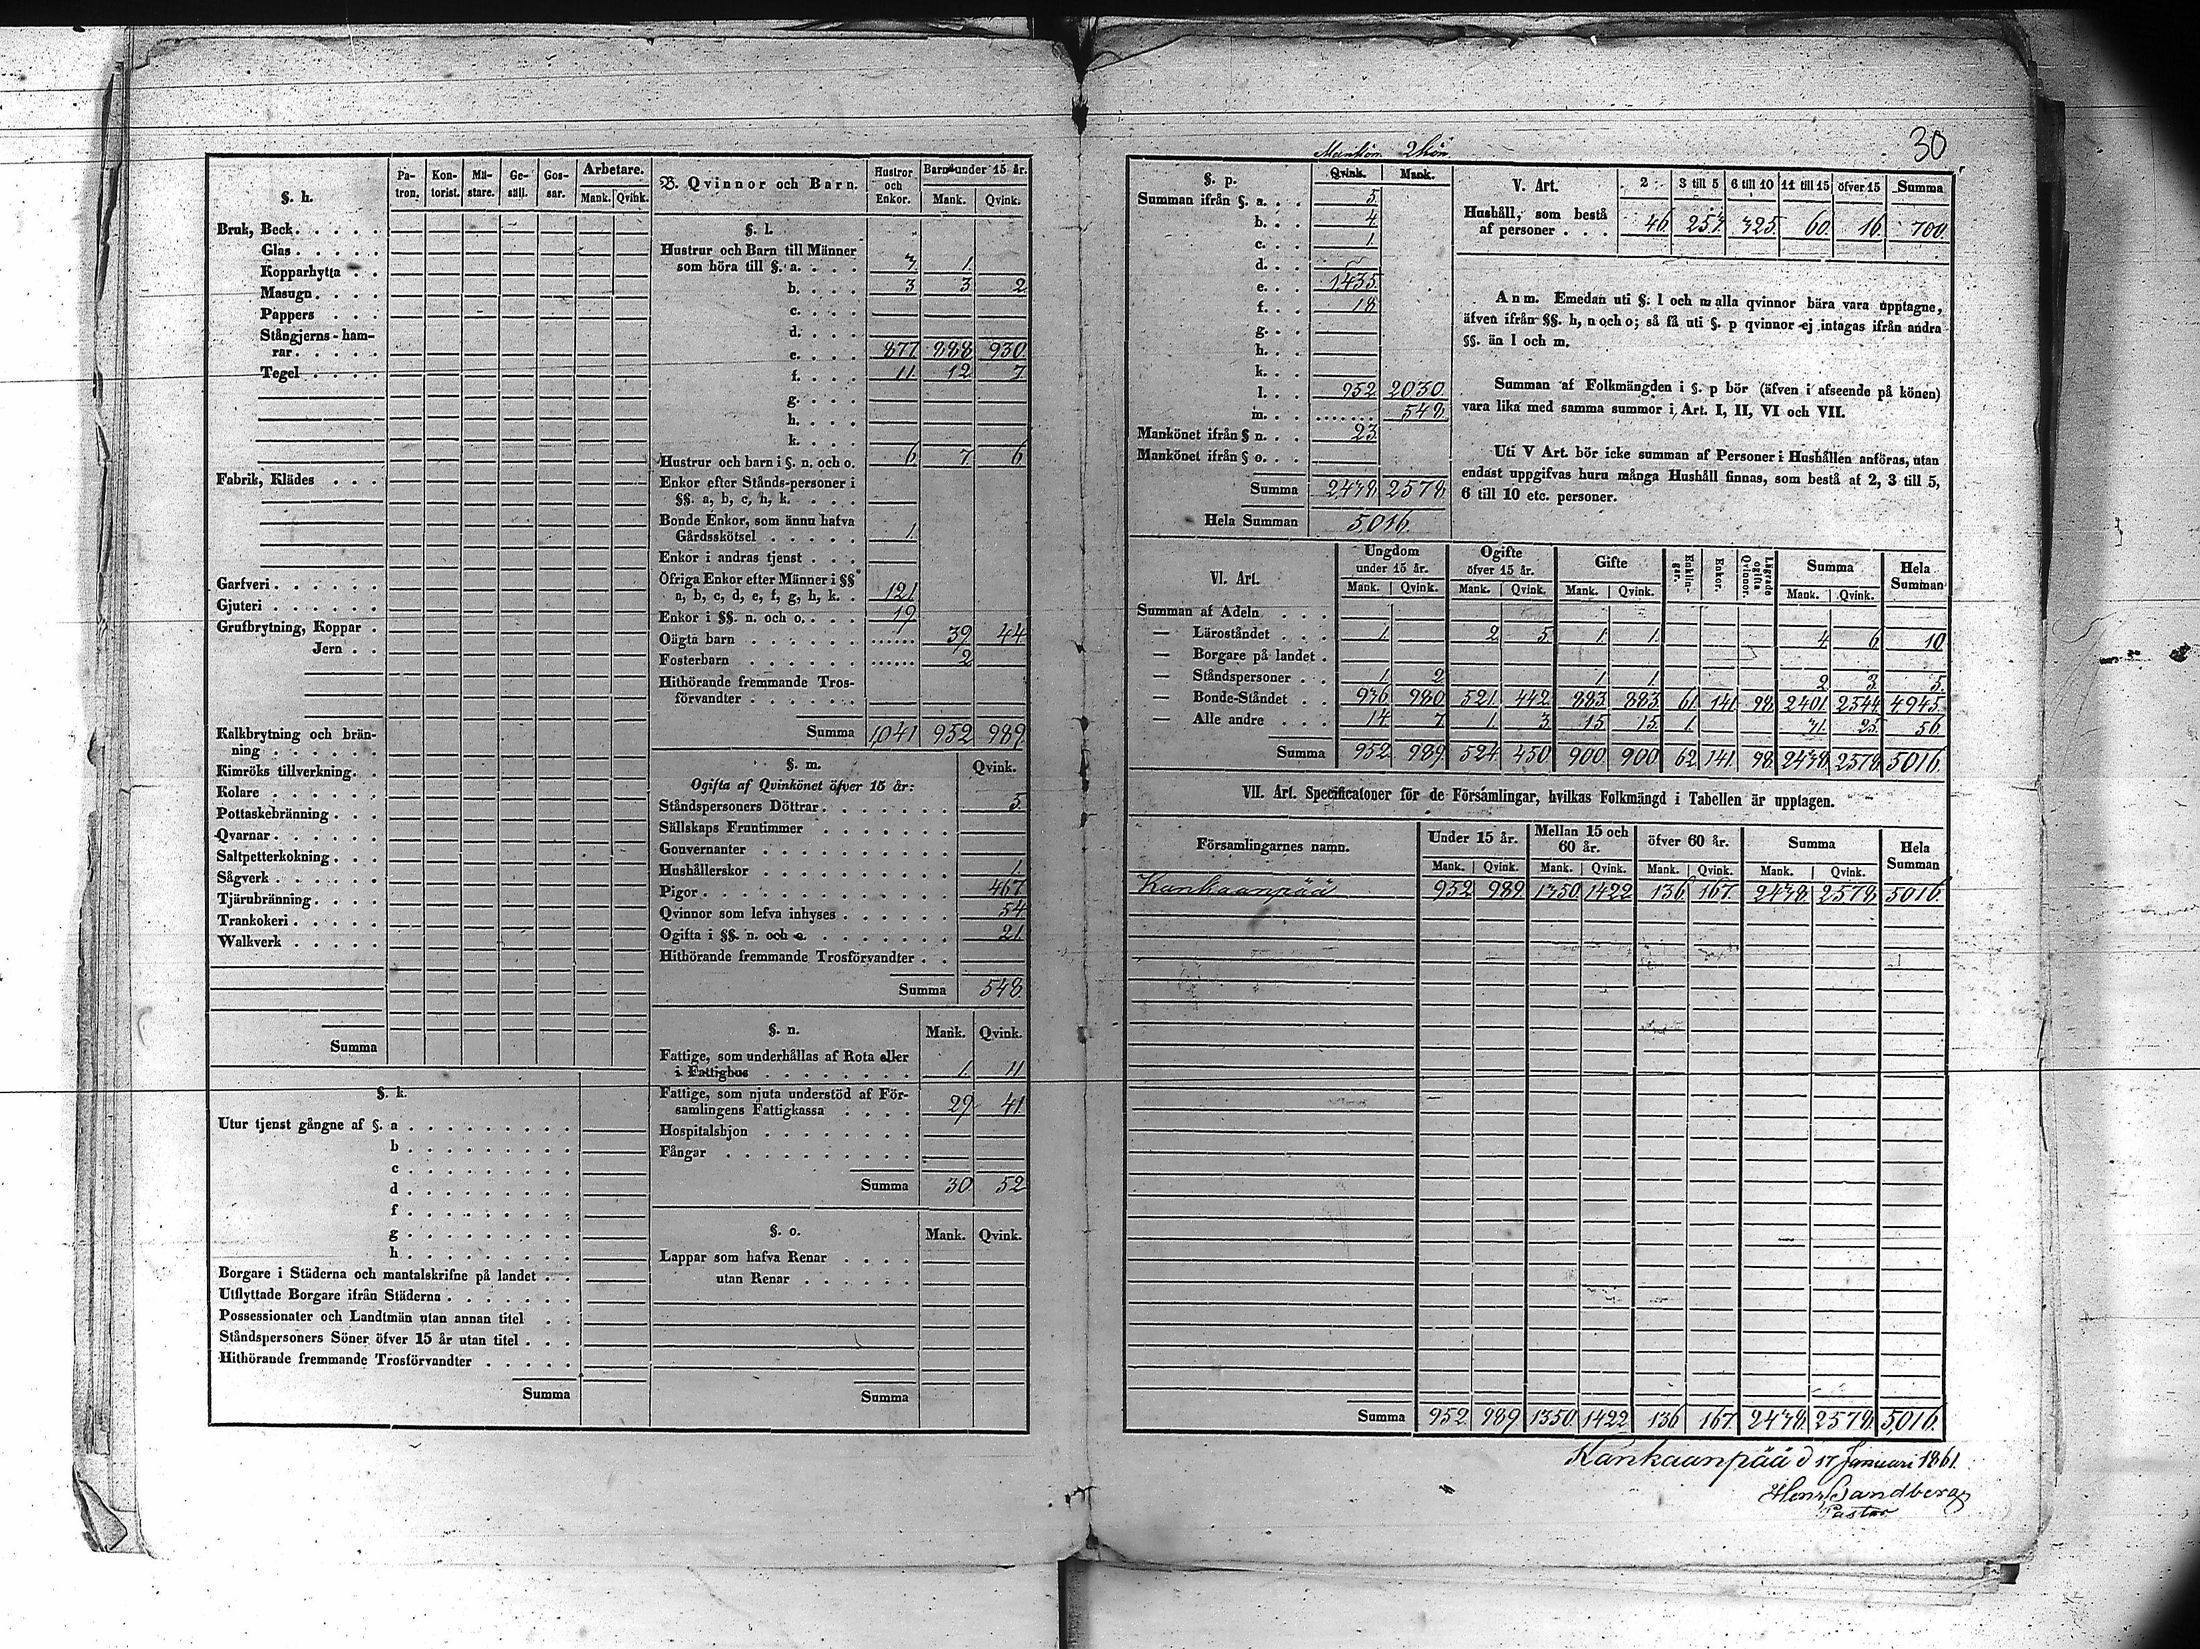 30
§. h.
Pa-tron. Kon-torist. Mä-stare. Ge-säll. Gos-sar. Arbetare.
Mank. Qvink.
Bruk, Beck
Glas
Kopparhytta
Masugn
Pappers
Stångjerns-ham-
rar
Tegel
Fabrik, Klädes
Garfveri
Gjuteri
Grufbrytning, Koppar
Jern
Kalkbrytning och brän-
ning
Kimröks tillverkning
Kolare
Pottaskebränning
Qvarnar
Saltpetterkokning
Sågverk
Tjärubränning
Trankokeri
Walkverk
Summa
§. k.
Utur tjenst gångne af §. a
b
c
d
f
g
h
Borgare i Städerna och mantalskrifne på landet
Utflyttade Borgare ifrån Städerna
Possessionater och Landtmän utan annan titel
Ståndspersoners Söner öfver 15 år utan titel
Hithörande fremmande Trosförvandter
Summa
B. Qvinnor och Barn. Hustror och Enkor. Barn under 15 år.
Mank. Qvink.
§. l.
Hustrur och Barn till Männer
som höra till §. a. 3 1
b. 3 3 2
c.
d.
e. 877 888 930
f. 11 12 7
g.
h.
k.
Hustrur och barn i §. n. och o. 6 7 6
Enkor efter Stånds-personer i
§§. a, b, c, h, k.
Bonde Enkor, som ännu hafva
Gårdsskötsel 1
Enkor i andras tjenst
Öfriga Enkor efter Männer i §§
a, b, c, d, e, f, g, h, k. 121
Enkor i §§. n. och o. 19
Oägta barn 39 44
Fosterbarn 2
Hithörande fremmande Tros-
förvandter
Summa 1041 952 989
§. m. Qvink.
Ogifta af Qvinkönet öfver 15 år:
Ståndspersoners Döttrar 5
Sällskaps Fruntimmer
Gouvernanter
Hushållerskor 1
Pigor 467
Qvinnor som lefva inhyses 54
Ogifta i §§. n. och o. 21
Hithörande fremmande Trosförvandter
Summa 548
§. n. Mank. Qvink.
Fattige, som underhållas af Rota eller
i Fattighus 1 11
Fattige, som njuta understöd af För-
samlingens Fattigkassa 29 41
Hospitalshjon
Fångar
Summa 30 52
§. o. Mank. Qvink.
Lappar som hafva Renar
utan Renar
Summa
Mankön Qkön
§. p. Qvink. Mank.
Summan ifrån §. a. 5
b. 4
c. 1
d.
e. 1435
f. 18
g.
h.
k.
l. 952 2030
m. 548
Mankönet ifrån § n. 23
Mankönet ifrån § o.
Summa 2438 2578
Hela Summan 5,016.
V. Art. 2 3 till 5 6 till 10 11 till 15 öfver 15 Summa
Hushåll, som bestå
af personer 46 253 325 60 16 700
Anm. Emedan uti §. l och m alla qvinnor bära vara upptagne,
äfven ifrån §§. h, n och o; så få uti §. p qvinnor ej intagas ifrån andra
§§. än l och m.
Summan af Folkmängden i §. p bör (äfven i afseende på könen)
vara lika med samma summor i Art. I, II, VI och VII.
Uti V Art. bör icke summan af Personer i Hushållen anföras, utan
endast uppgifvas huru många Hushåll finnas, som bestå af 2, 3 till 5,
6 till 10 etc. personer.
VI. Art. Ungdom under 15 år. Ogifte öfver 15 år. Gifte Enklin-gar. Enkor. Lägrade ogifta Qvinnor. Summa Hela Summan
Mank. Qvink. Mank. Qvink. Mank. Qvink. Mank. Qvink.
Summan af Adeln
— Läroståndet 1 2 5 1 1 4 6 10
— Borgare på landet
— Ståndspersoner 1 2 1 1 2 3 5
— Bonde-Ståndet 936 980 521 442 883 883 61 141 98 2401 2544 4945
— Alle andre 14 7 1 3 15 15 1 31 25 56
Summa 952 989 524 450 900 900 62 141 98 2438 2578 5016
VII. Art. Specificatoner för de Församlingar, hvilkas Folkmängd i Tabellen är upptagen.
Församlingarnes namn. Under 15 år. Mellan 15 och 60 år. öfver 60 år. Summa Hela Summan
Mank. Qvink. Mank. Qvink. Mank. Qvink. Mank. Qvink.
Kankaanpää 952 989 1350 1422 136 167 2438 2578 5016
Summa 952 989 1350 1422 136 167 2438 2578 5,016
Kankaanpää d 17 Januari 1861.
Henr Sandberg
Pastor